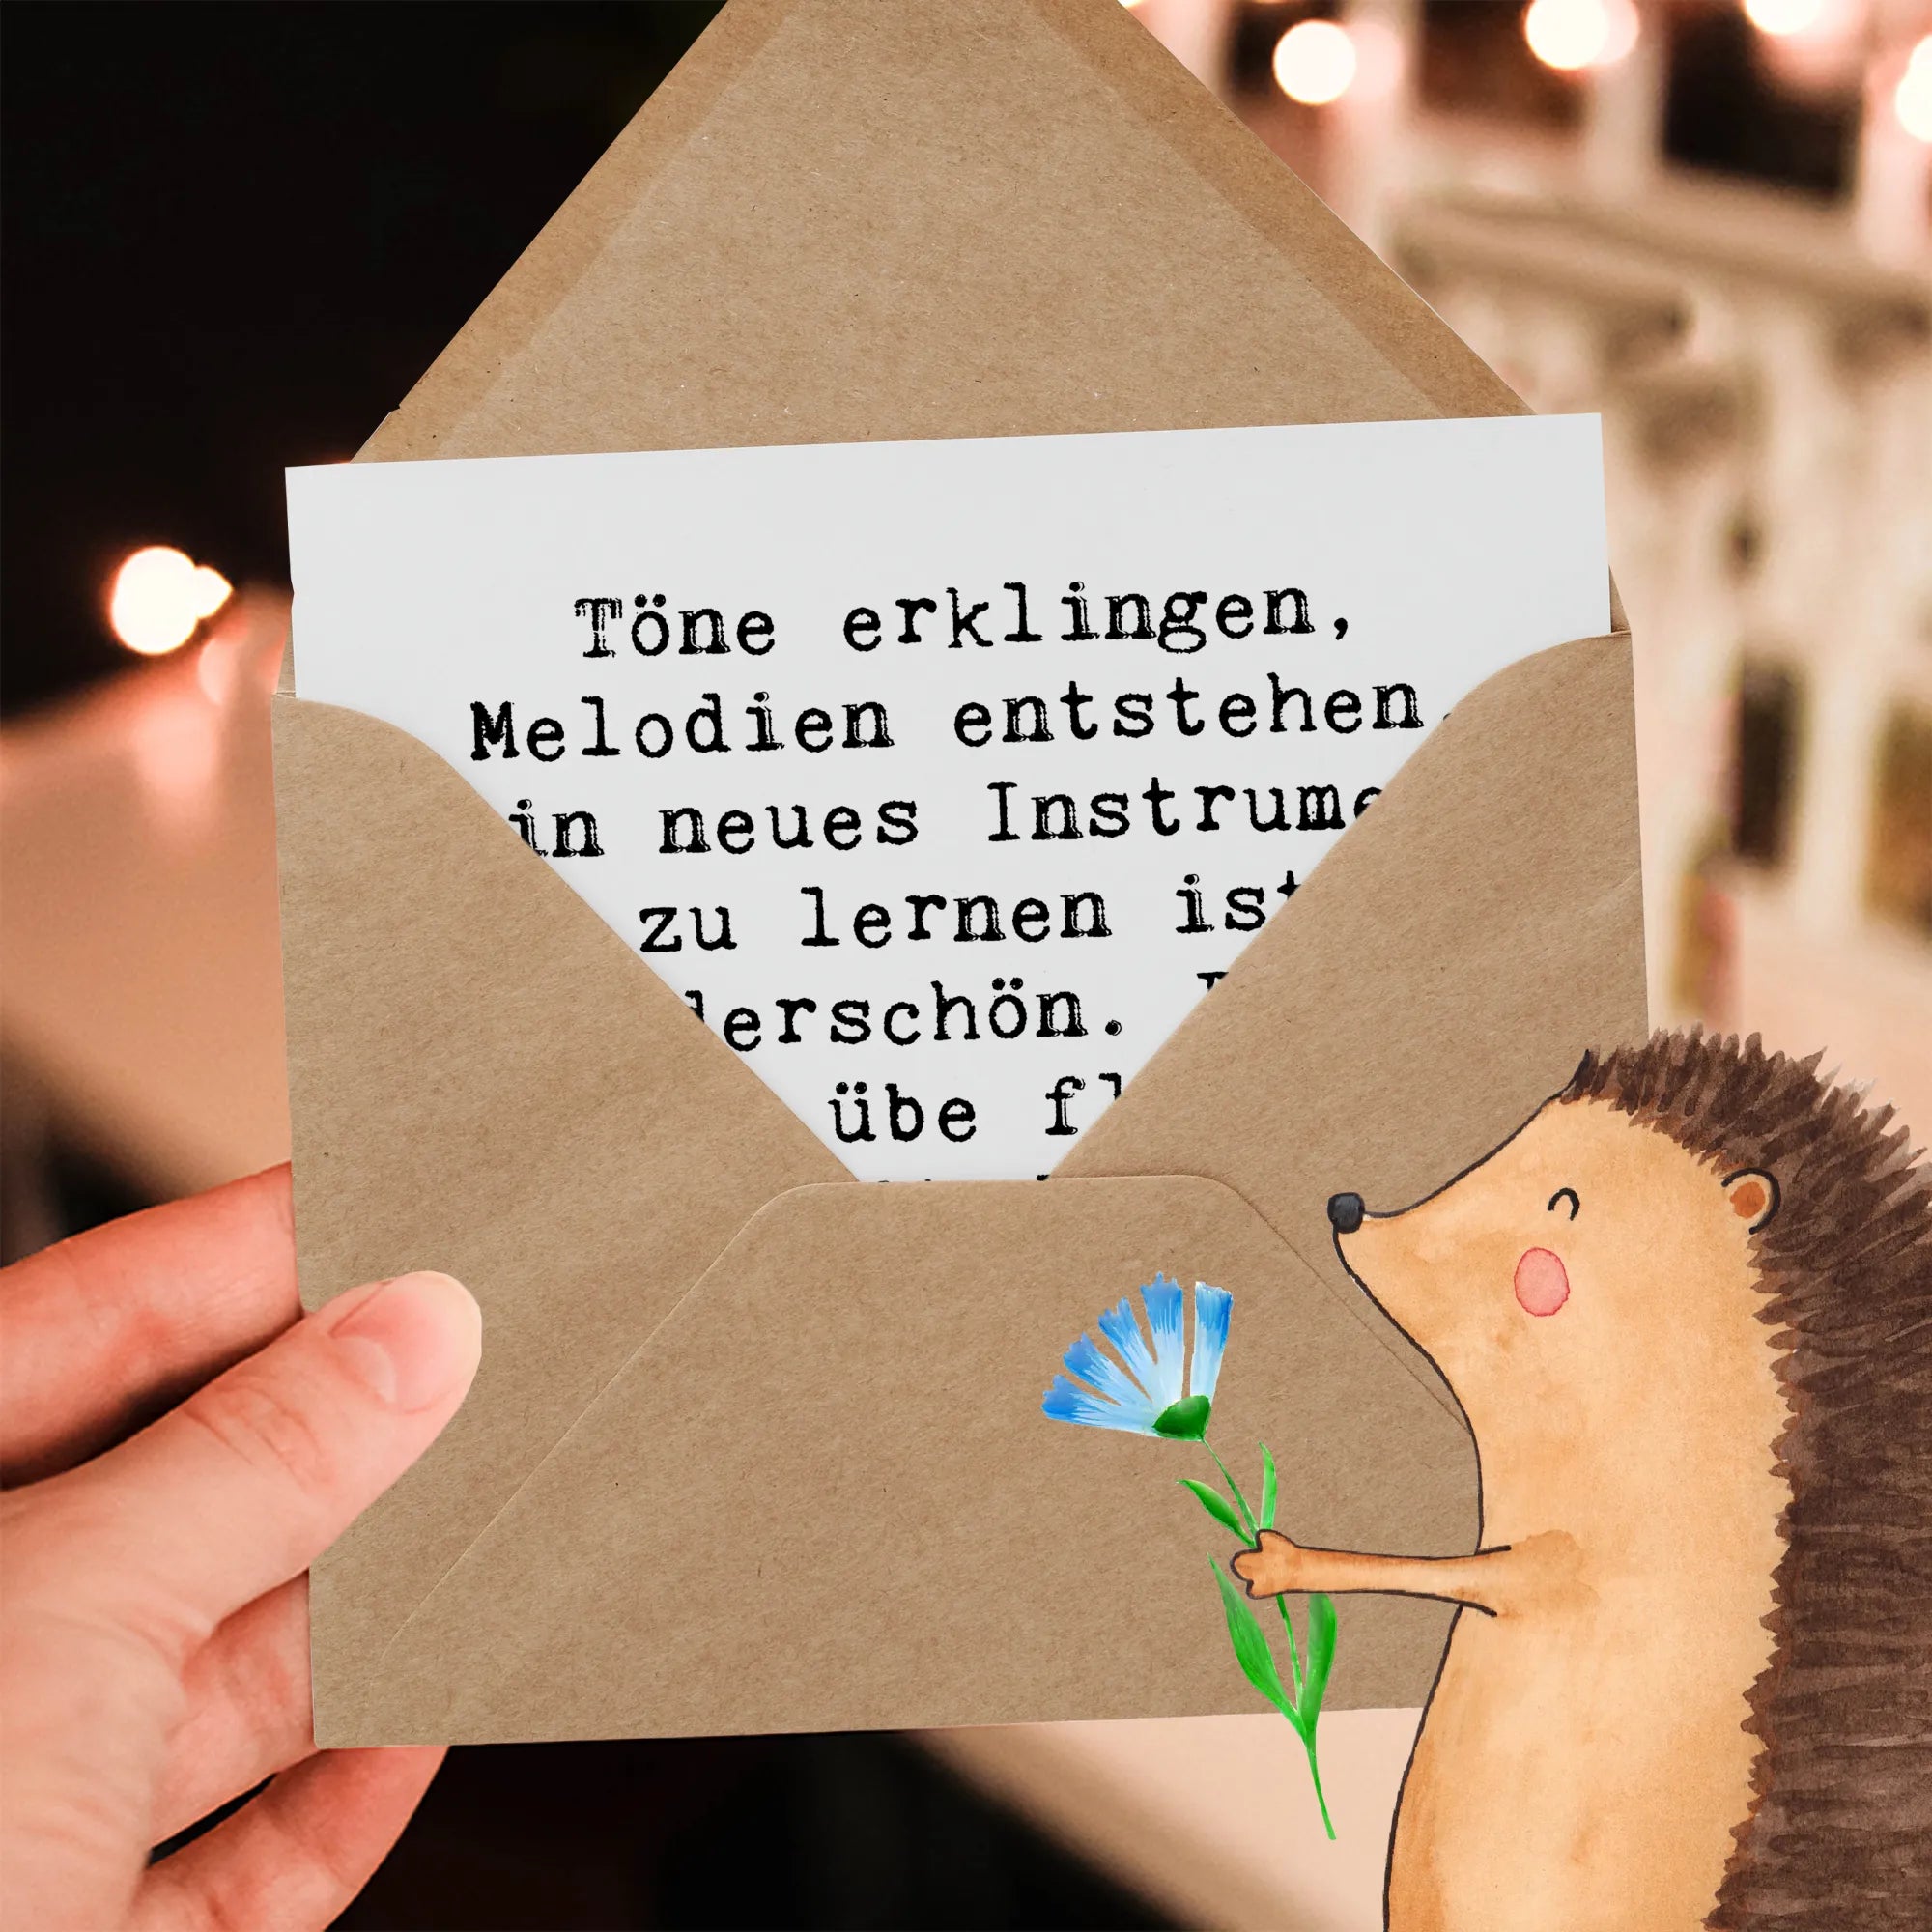 Töne erklingen,
Melodien entstehen,
in neues Instrume
zu lernen ist
derschön.
übe fl